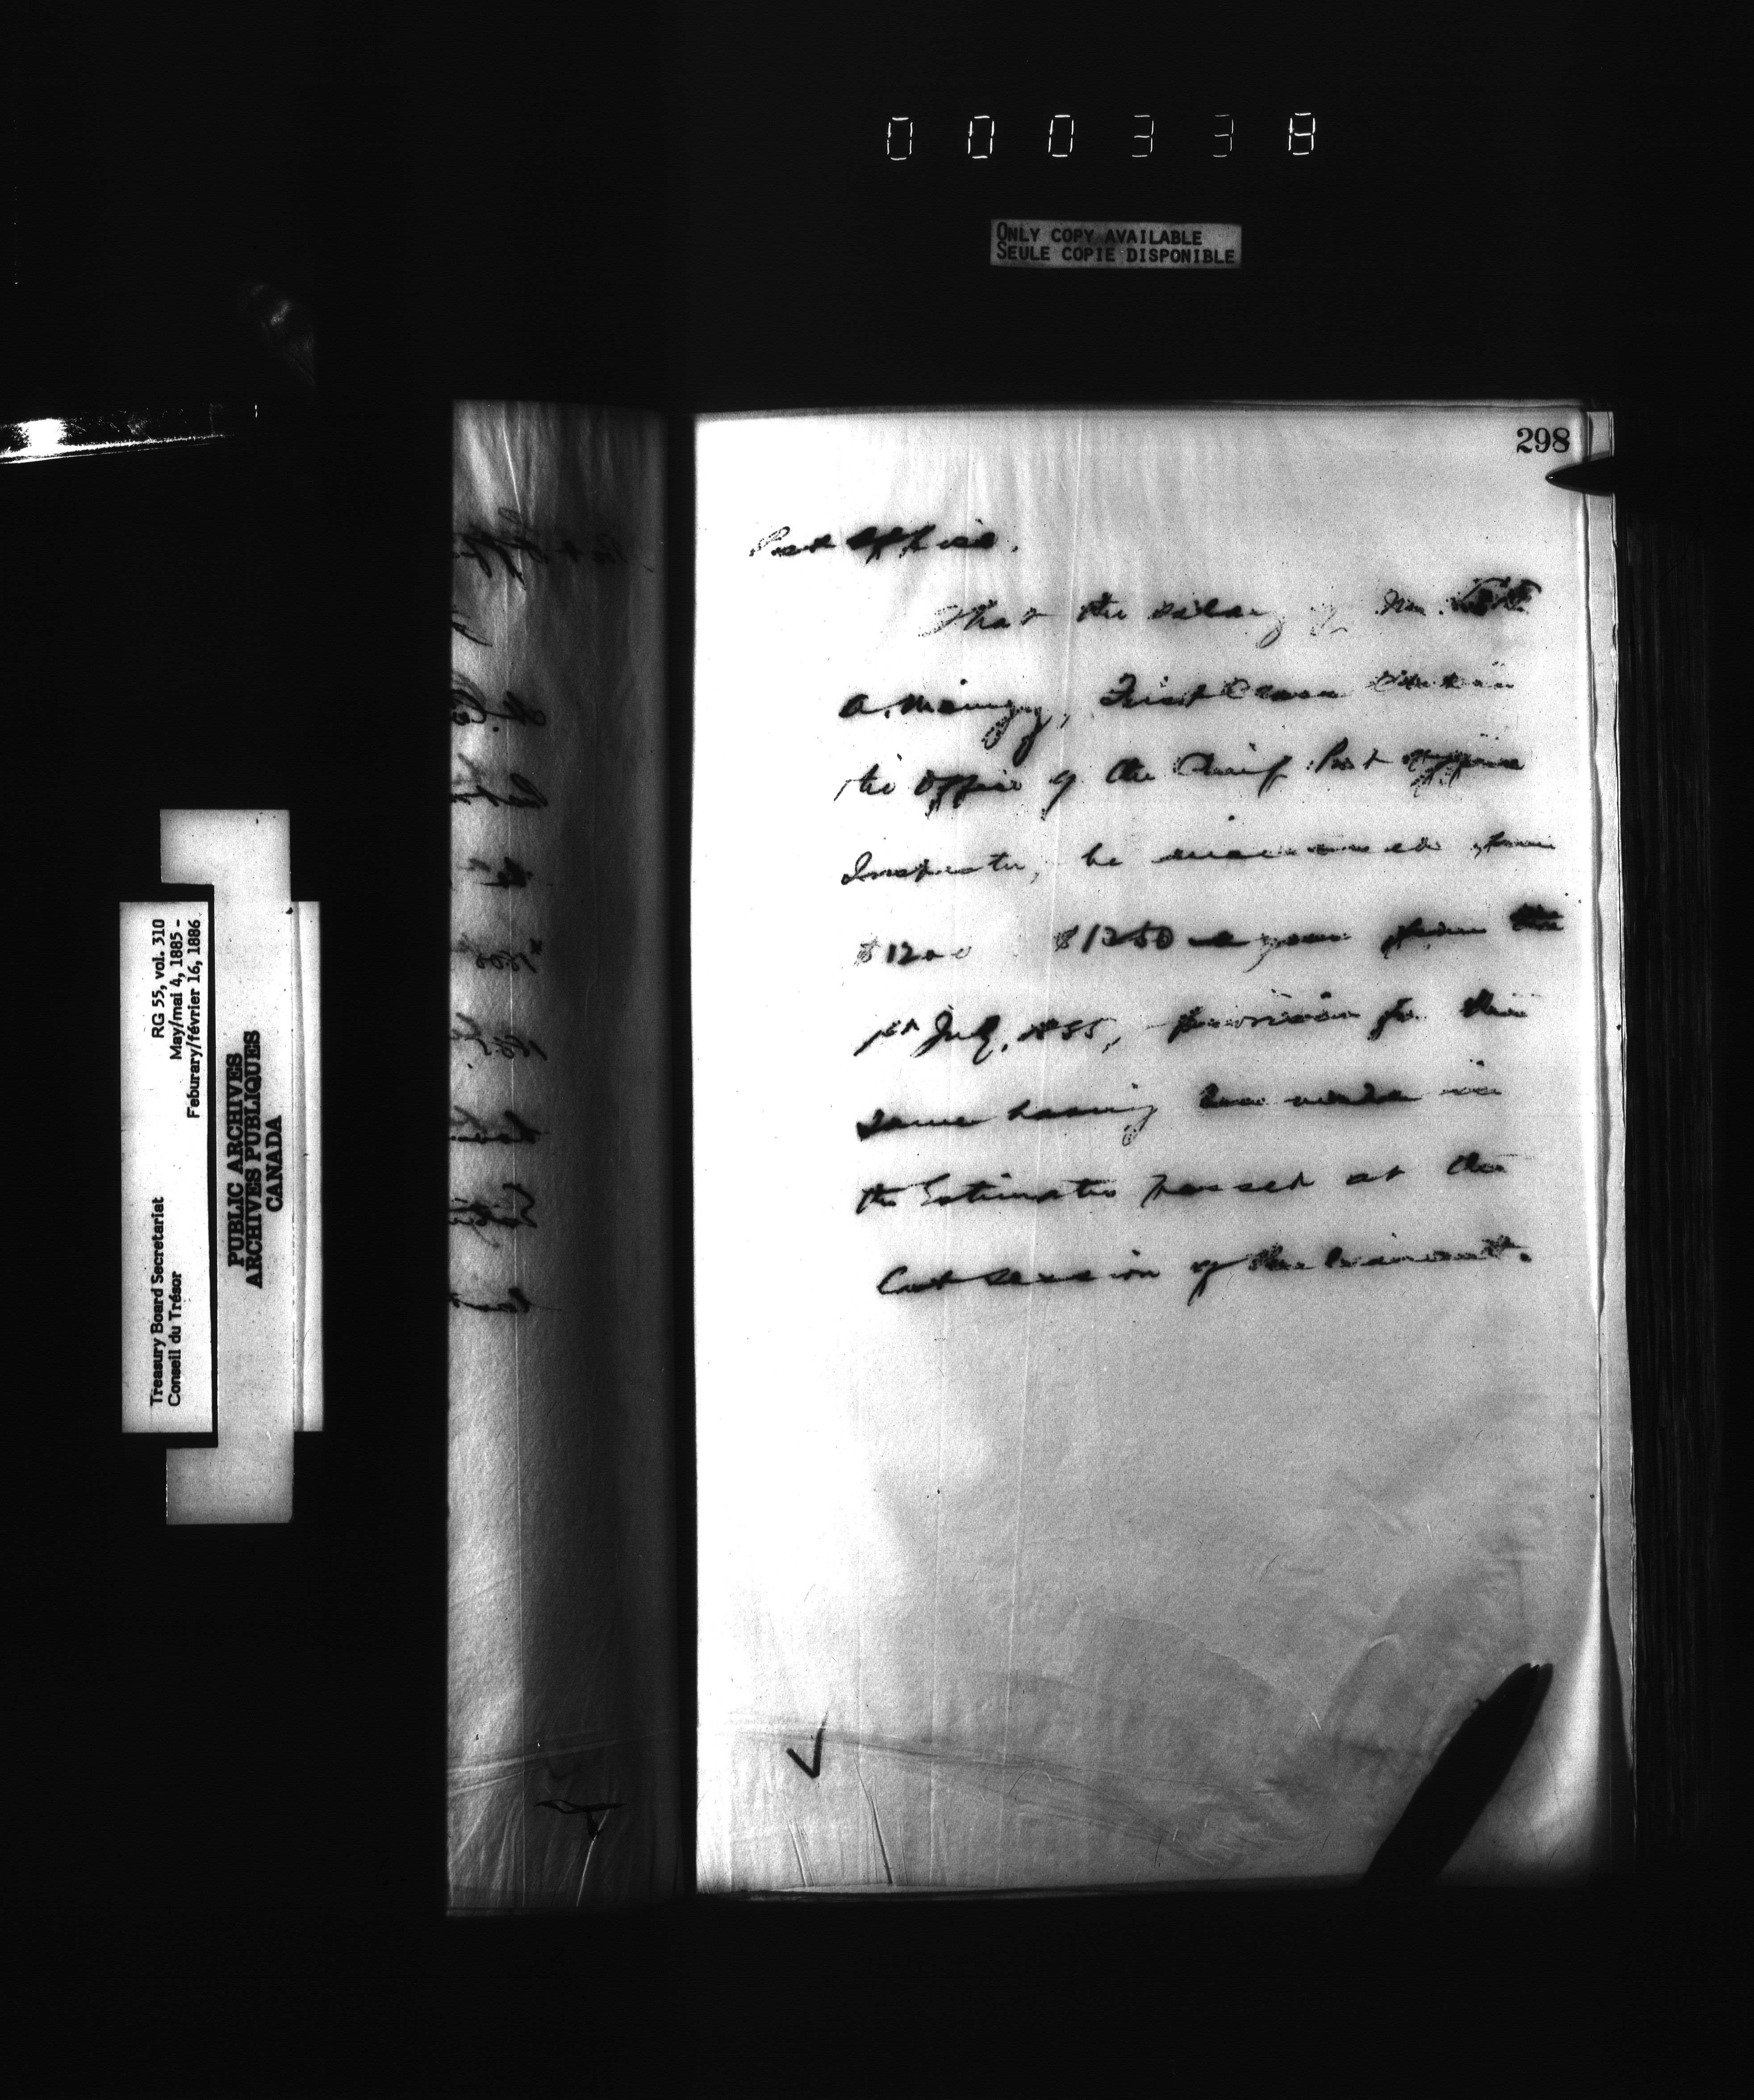 000338
ONLY COPY AVAILABLE
SEULE COPIE DISPONIBLE
298
Post Office.
That the salary of Mr.
A. Maingy, First Class Clerk in
the Office of the Chief Post Office
Inspector, be increased from
$1200 $1250 a year from the
1st July, 1885, provision for the
same having been made in
the Estimates passed at the
last session of Parliament.
Treasury Board Secretariat
Conseil du Trésor
RG 55, vol. 310
May/mai 4, 1885 -
Feburary/février 16, 1886
PUBLIC ARCHIVES
ARCHIVES PUBLIQUES
CANADA